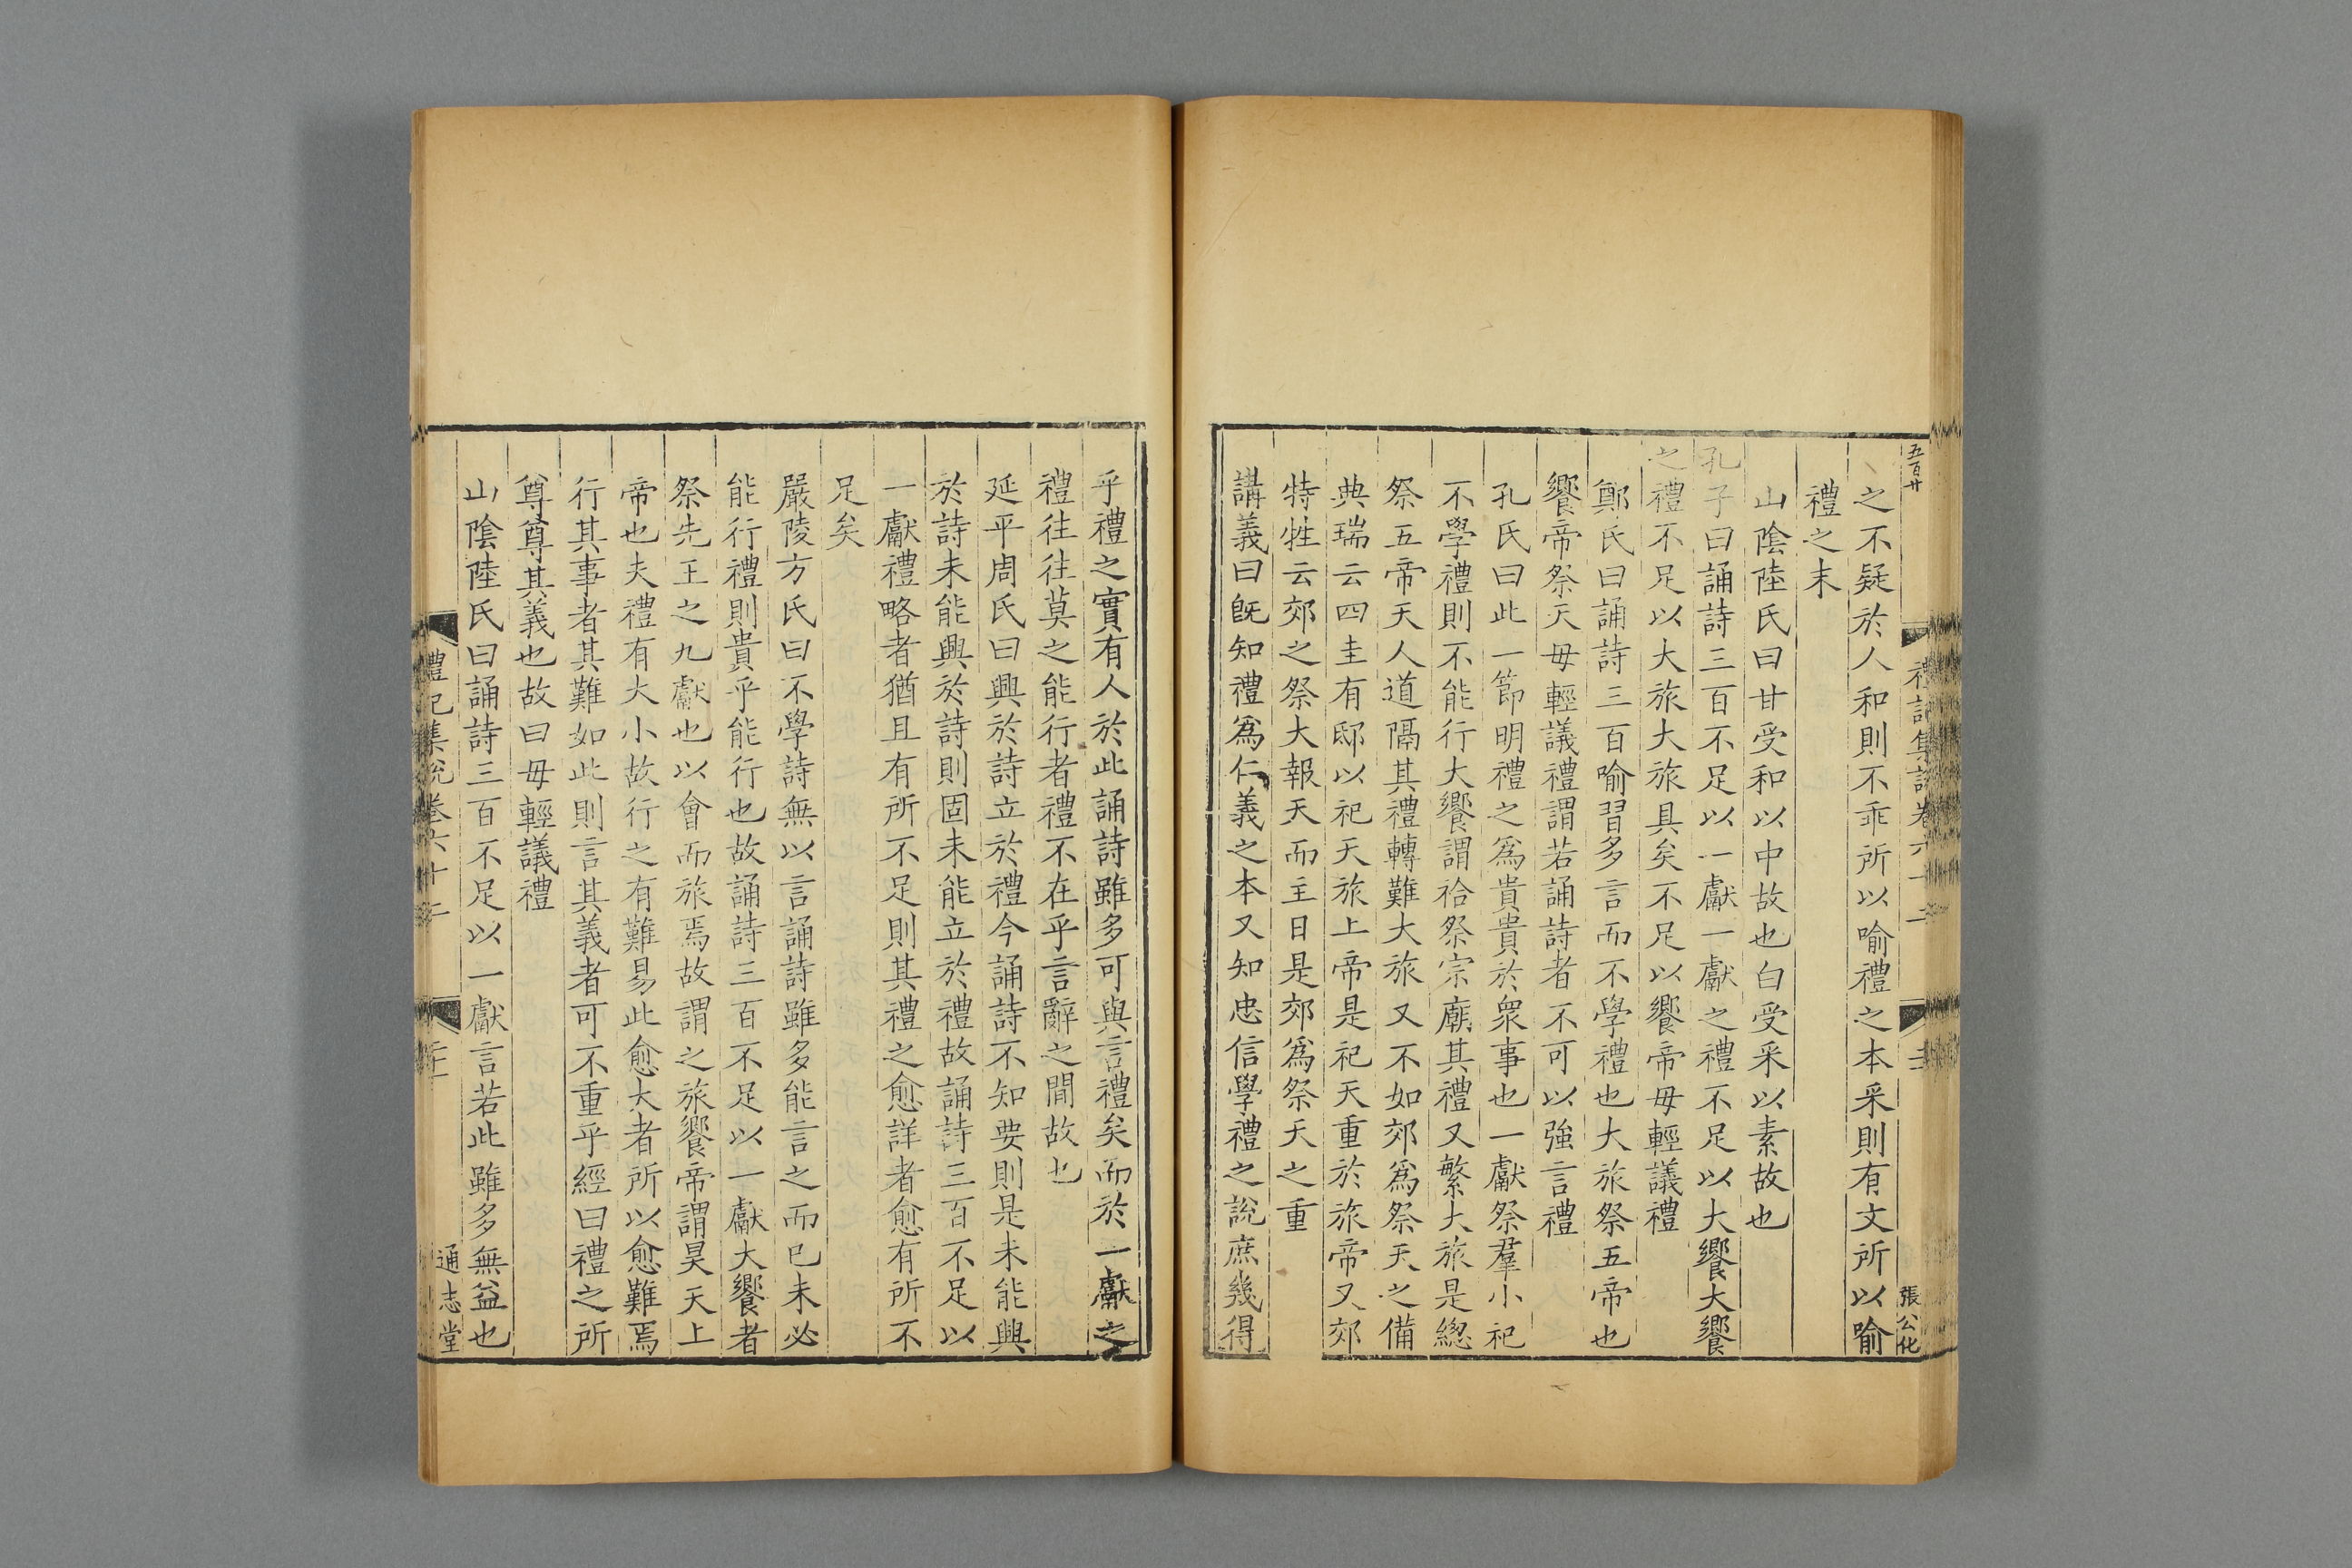 五百廿
禮記集説卷六十二
張公化
之不疑於人和則不乖所以喻禮之本采則有文所以喻
禮之末
山陰陸氏曰甘受和以中故也白受采以素故也
孔子曰誦詩三百不足以一獻一獻之禮不足以大饗大饗
之禮不足以大旅大旅具矣不足以饗帝毋輕議禮
鄭氏曰誦詩三百喻習多言而不學禮也大旅祭五帝也
饗帝祭天毋輕議禮謂若誦詩者不可以強言禮
孔氏曰此一節明禮之為貴貴於衆事也一獻祭羣小祀
不學禮則不能行大饗謂祫祭宗廟其禮又繁大旅是緫
祭五帝天人道隔其禮轉難大旅又不如郊為祭天之備
典瑞云四圭有邸以祀天旅上帝是祀天重於旅帝又郊
特牲云郊之祭大報天而主日是郊為祭天之重
講義曰旣知禮為仁義之本又知忠信學禮之說庶幾得
乎禮之實有人於此誦詩雖多可與言禮矣而於一獻之
禮往往莫之能行者禮不在乎言辭之間故也
延平周氏曰興於詩立於禮今誦詩不知要則是未能興
於詩未能興於詩則固未能立於禮故誦詩三百不足以
一獻禮略者猶且有所不足則其禮之愈詳者愈有所不
足矣
嚴陵方氏曰不學詩無以言誦詩雖多能言之而已未必
能行禮則貴乎能行也故誦詩三百不足以一獻大饗者
祭先王之九獻也以會而旅焉故謂之旅饗帝謂昊天上
帝也夫禮有大小故行之有難易此愈大者所以愈難焉
行其事者其難如此則言其義者可不重乎經曰禮之所
尊尊其義也故曰毋輕議禮
山陰陸氏曰誦詩三百不足以一獻言若此雖多無益也
禮記集説卷六十二
通志堂